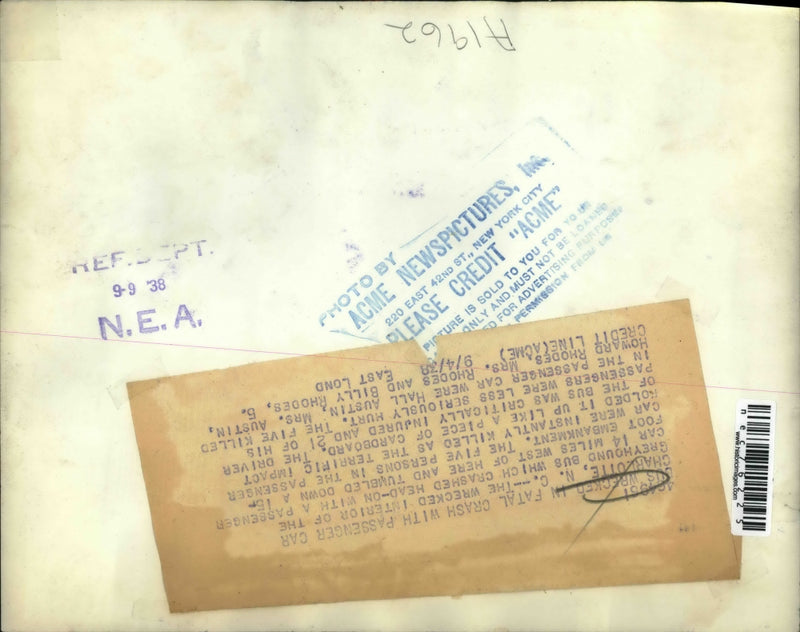 A1962
REF. DEPT.
9-9 '38
N.E.A.
PHOTO BY
ACME NEWSPICTURES, Inc.
220 EAST 42ND ST., NEW YORK CITY
PLEASE CREDIT "ACME"
PICTURE IS SOLD TO YOU FOR YOUR
ONLY AND MUST NOT BE LOANED
FOR ADVERTISING PURPOSES
PERMISSION FROM US
IS WRECKED IN FATAL CRASH WITH PASSENGER CAR
CHARLOTTE, N. C.---THE WRECKED INTERIOR OF THE
GREYHOUND BUS WHICH CRASHED HEAD-ON WITH A PASSENGER
CAR 14 MILES WEST OF HERE AND TUMBLED DOWN A 15-
FOOT EMBANKMENT. FIVE PERSONS IN THE PASSENGER
CAR WERE INSTANTLY KILLED AS THE TERRIFIC IMPACT
FOLDED IT UP LIKE A PIECE OF CARDBOARD. THE DRIVER
OF THE BUS WAS CRITICALLY INJURED AND 21 OF HIS
PASSENGERS WERE LESS SERIOUSLY HURT. THE FIVE KILLED
IN THE PASSENGER CAR WERE HALL AUSTIN, MRS. AUSTIN,
HOWARD RHODES, MRS. RHODES AND BILLY RHODES, 5.
CREDIT LINE (ACME) 9/4/38 EAST LOND
www.historicimages.com